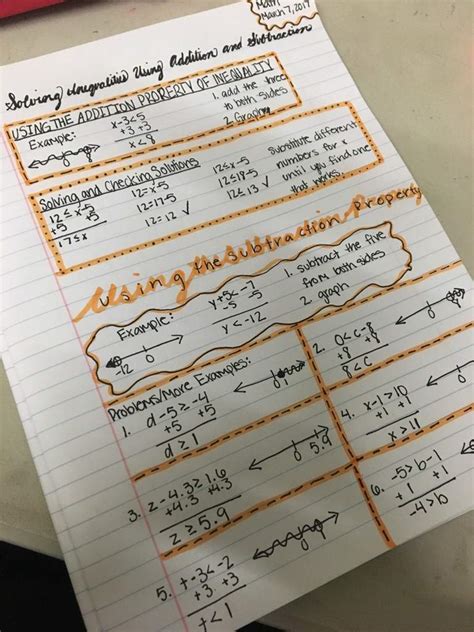 Math
March 7, 2019
Solving Inequalities Using Addition and Subtraction
USING THE ADDITION PROPERTY OF INEQUALITY
Example:
x-3<5
+3 +3
x<8
1. add the three
to both sides
2. Graph
Solving and Checking Solutions
12≤x-5
+5 +5
17≤x
12=x-5
12=17-5
12=12 ✓
12≤x-5
12≤18-5
12≤13 ✓
substitute different
numbers for x
until you find one
that works.
Using the Subtraction Property
Example:
-12 0
y+5<-7
-5 -5
y<-12
1. subtract the five
from both sides
2. graph
Problems/More Examples:
1. d-5≥-4
+5 +5
d≥1
0 1
2. 0<c-8
+8 +8
8<c
3. z-4.3≥1.6
+4.3 +4.3
z≥5.9
0 5.9
4. x-1>10
+1 +1
x>11
5. t-3<-2
+3 +3
t<1
6. -5>b-1
+1 +1
-4>b